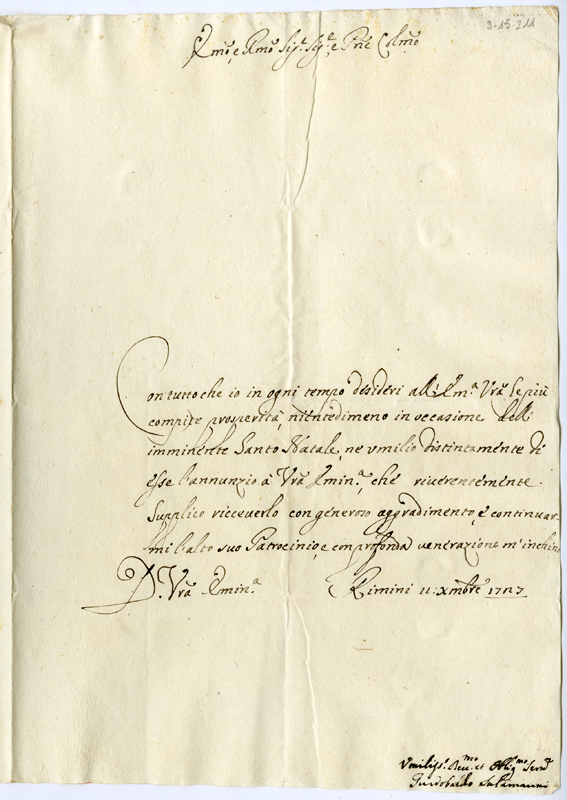 3-15-211
Em̃o, e Rm̃o Sig.r Sig.r e Prñe Colm̃o
Con tutto che io in ogni tempo desideri all'Em.a Vrã le più
compite prosperità, nientedimeno in occasione dell'
imminente Santo Natale, ne umilio distintamente di
esse l'annunzio à Vrã Emin.a, che riverentemente
supplico ricceverlo con generoso aggradimento, è continuar-
mi l'alto suo Patrocinio, e con profonda venerazione m'inchino
D. Vrã Emin.a
Rimini 11: Xmbre
Umiliss.o Dev.mo et Obblig.mo Serv.e